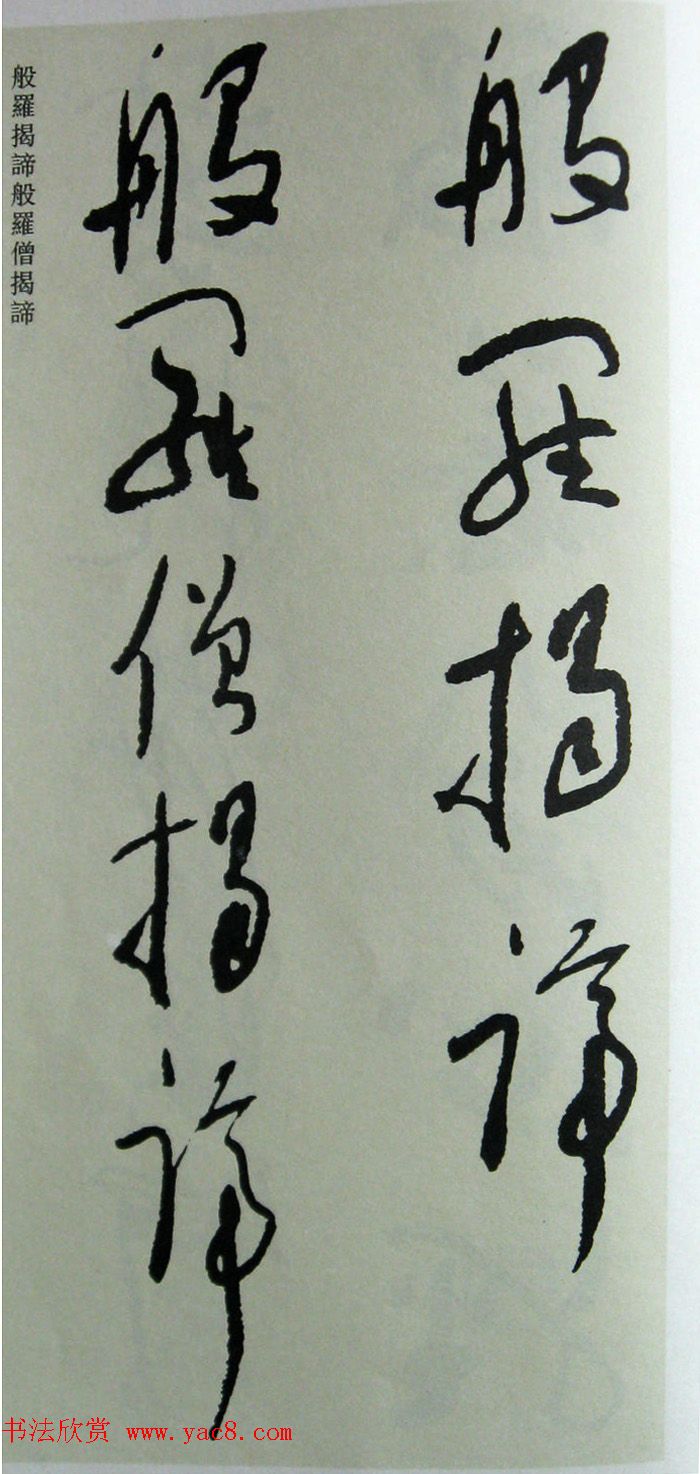 般羅揭諦
般羅僧揭諦
般羅揭諦般羅僧揭諦
书法欣赏 www.yac8.com